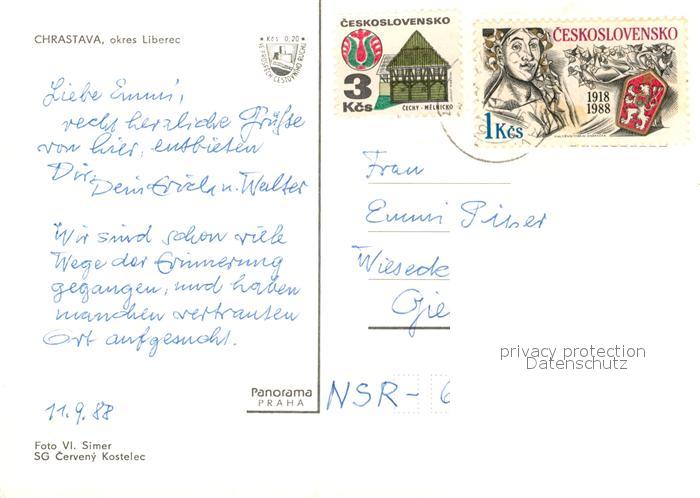 CHRASTAVA, okres Liberec
Kčs 0,20
VE PROSPĚCH CESTOVNÍHO RUCHU
ČESKOSLOVENSKO
3
Kčs
ČECHY - MĚLNICKO
ČESKOSLOVENSKO
1918
1988
1 Kčs
Liebe Emmi,
recht herzliche Grüße
von hier, entbieten
Dir,
Dein Erich u. Walter
Wir sind schon viele
Wege der Erinnerung
gegangen, und haben
manchen vertrauten
Ort aufgesucht.
11.9.88
Frau
Emmi
Wieseck
Gie
NSR- 6
Panorama
PRAHA
Foto Vl. Simer
SG Červený Kostelec
privacy protection
Datenschutz